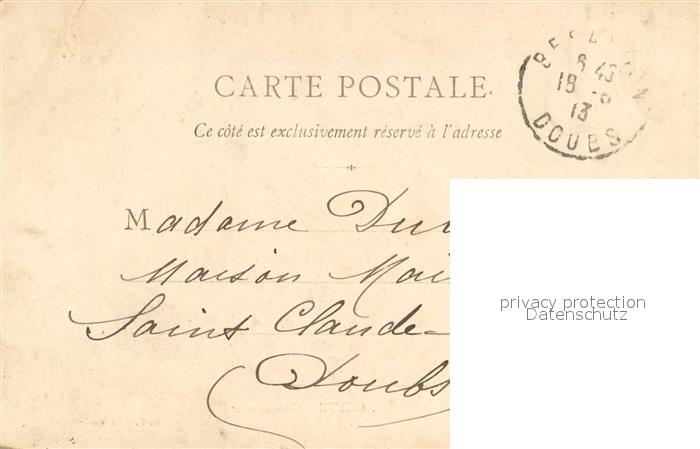 CARTE POSTALE
Ce côté est exclusivement réservé à l'adresse
18
13
DOUBS
Madame
Maison
Saint Claude-
Doubs
privacy protection
Datenschutz